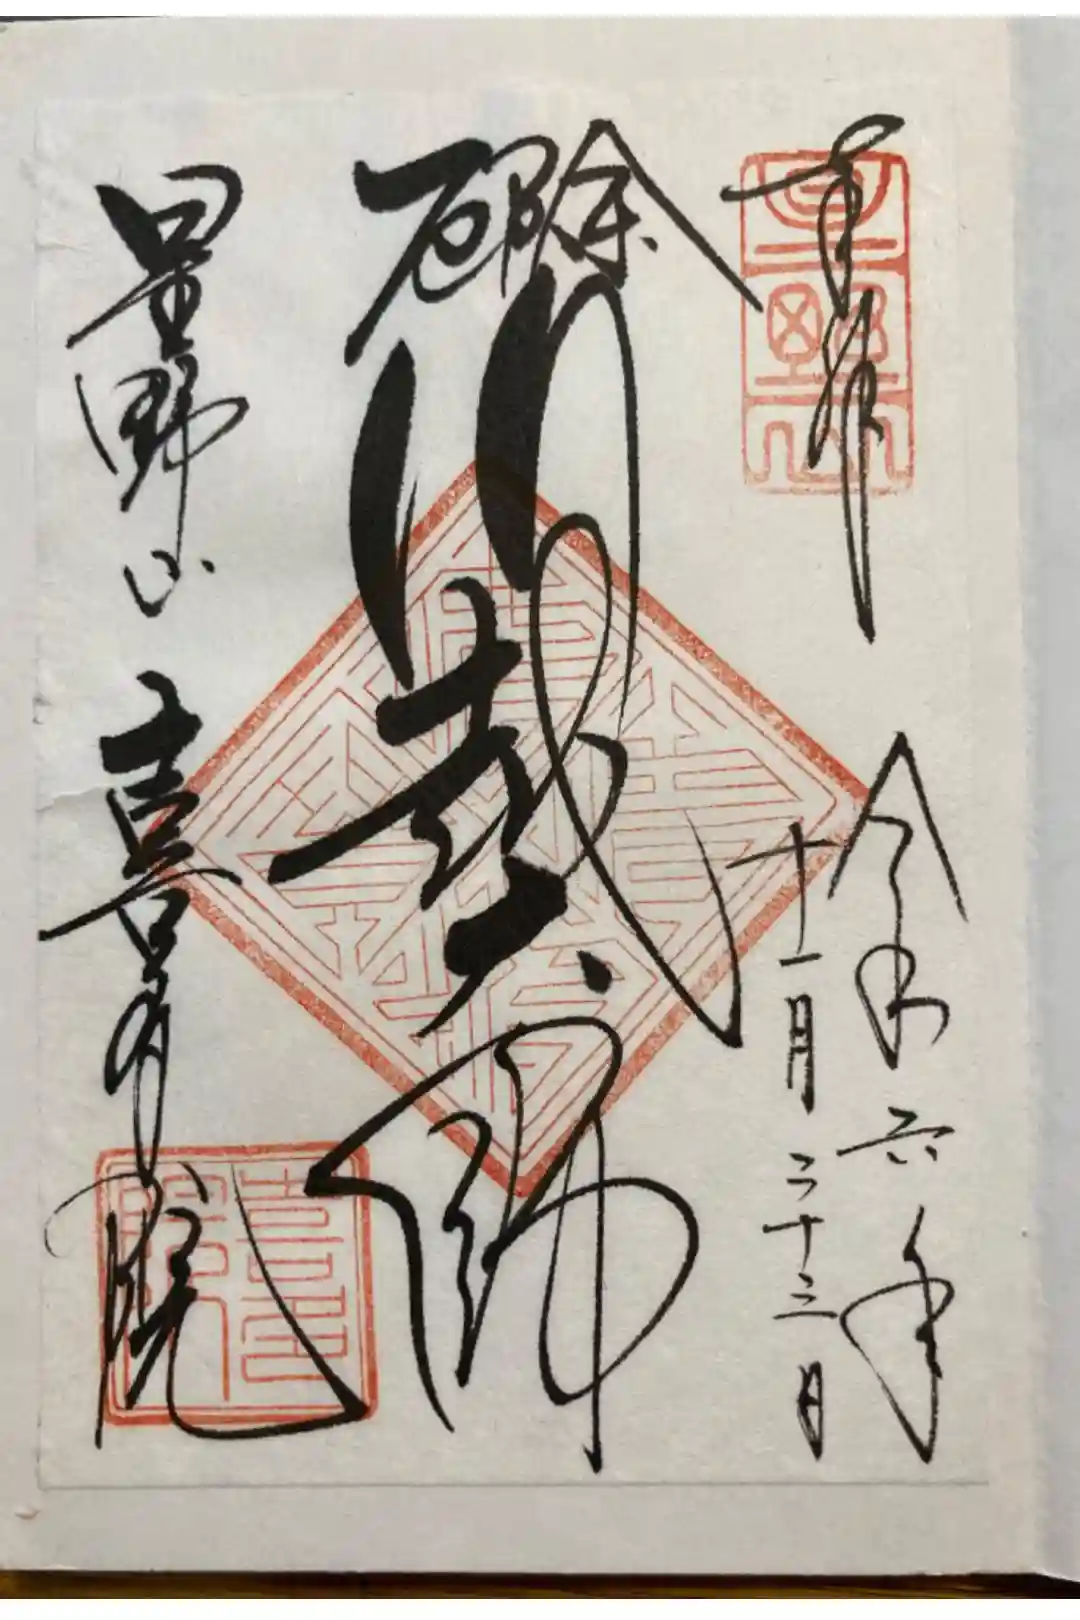 奉拝
令和六年
十一月二十三日
厄除
川越大師
星野山 喜多院
星野山